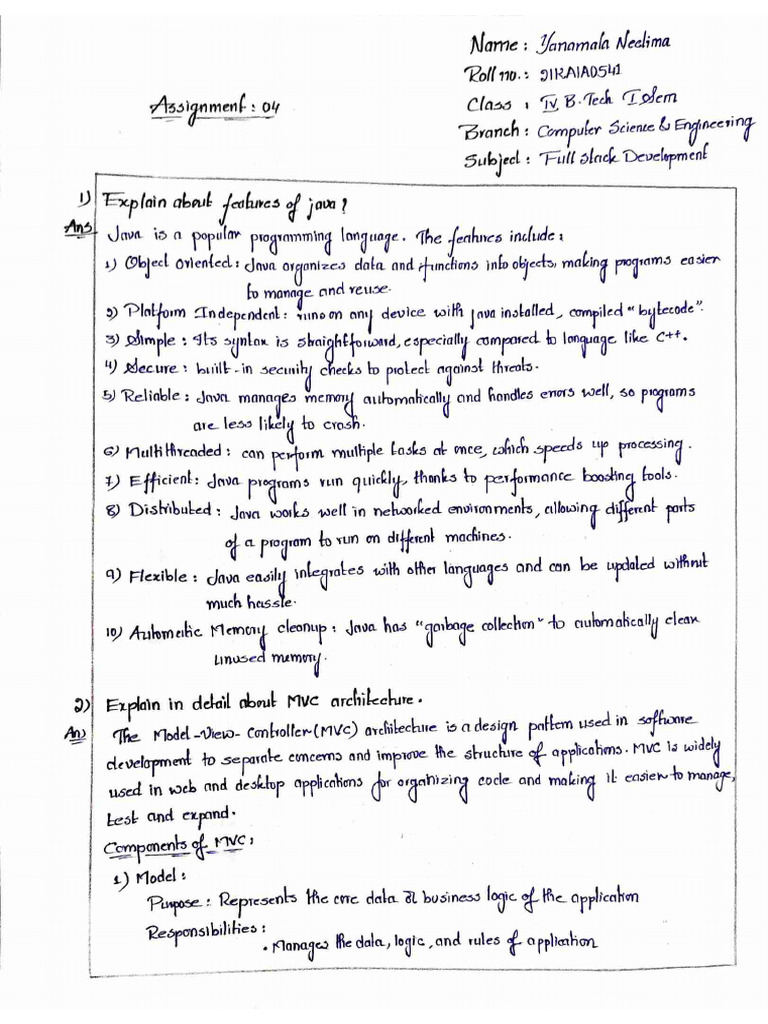 Name: Yanamala Neelima
Roll no.: 21KA1A0541
Assignment: 04
Class: IV B.Tech I Sem
Branch: Computer Science & Engineering
Subject: Full Stack Development
1) Explain about features of java?
Ans Java is a popular programming language. The features include:
1) Object Oriented: Java organizes data and functions into objects, making programs easier
to manage and reuse.
2) Platform Independent: runs on any device with java installed, compiled "bytecode".
3) Simple: Its syntax is straightforward, especially compared to language like C++.
4) Secure: built-in security checks to protect against threats.
5) Reliable: Java manages memory automatically and handles errors well, so programs
are less likely to crash.
6) Multithreaded: can perform multiple tasks at once, which speeds up processing.
7) Efficient: Java programs run quickly, thanks to performance boosting tools.
8) Distributed: Java works well in networked environments, allowing different parts
of a program to run on different machines.
9) Flexible: Java easily integrates with other languages and can be updated without
much hassle.
10) Automatic Memory cleanup: Java has "garbage collection" to automatically clean
unused memory.
2) Explain in detail about MVC architecture.
An) The Model-View-Controller (MVC) architecture is a design pattern used in software
development to separate concerns and improve the structure of applications. MVC is widely
used in web and desktop applications for organizing code and making it easier to manage,
test and expand.
Components of MVC:
1) Model:
Purpose: Represents the core data or business logic of the application
Responsibilities:
• Manages the data, logic, and rules of application